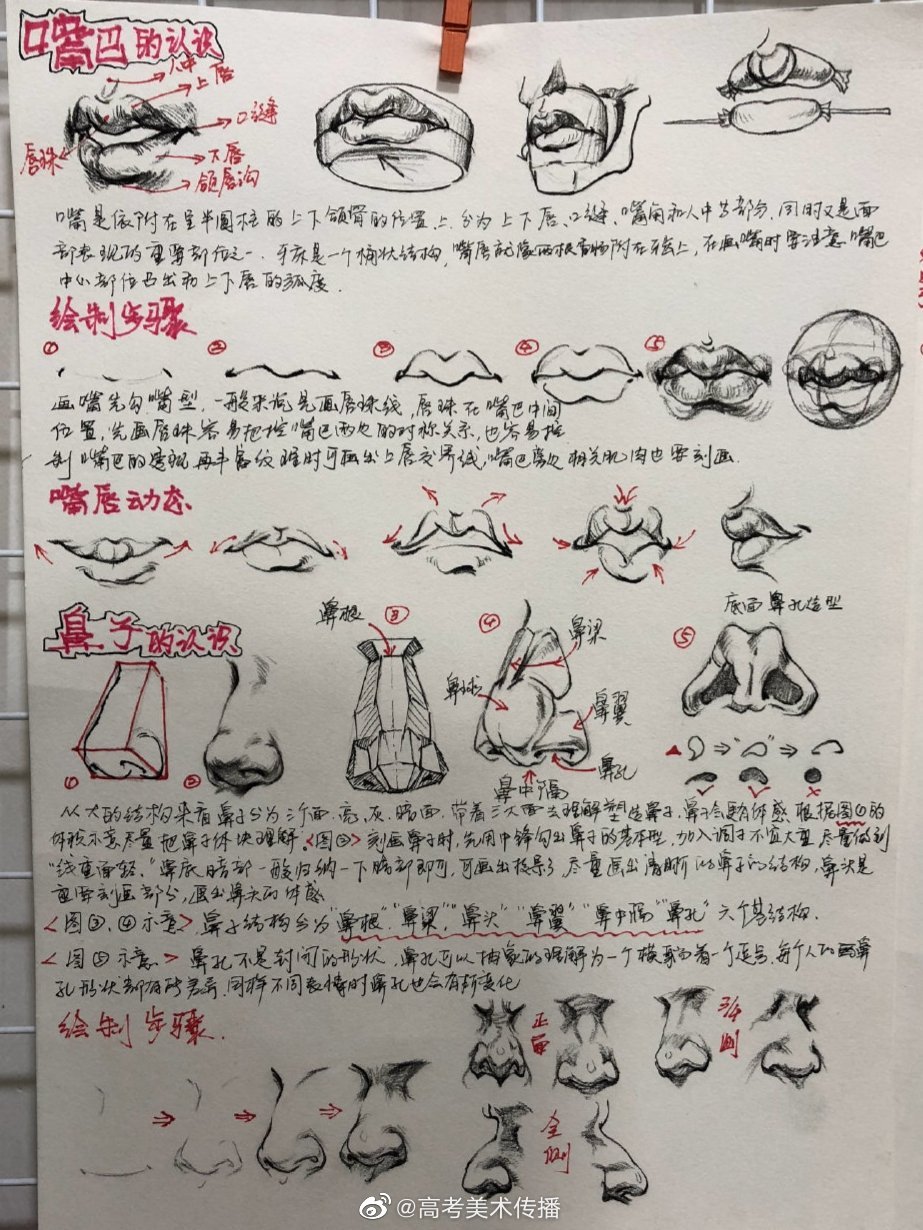 嘴巴的认识
人中
上唇
口缝
唇珠
下唇
颌唇沟
嘴是依附在呈半圆柱的上下颌骨的位置上.分为上下唇、口缝、嘴角和人中等部分.同时又是面
部表现的重要部位之一.牙床是一个桶状结构,嘴唇就像两根香肠附在牙齿上,在画嘴时要注意嘴巴
中心部位凸出和上下唇的弧度.
绘制步骤
① ② ③ ④ ⑤
画嘴先勾嘴型,一般来说先画唇珠线,唇珠在嘴巴中间
位置,先画唇珠容易把控嘴巴两边的对称关系,也容易控
制嘴巴的透视.再丰富纹理时可画出上唇交界线,嘴巴旁边相关肌肉也要刻画.
嘴唇动态
底面鼻孔造型
鼻子的认识
鼻根
③ ④ ⑤
鼻梁
鼻球
鼻翼
鼻孔
鼻中隔
① ②
从大的结构来看鼻子分为三个面.亮,灰,暗面.带着三大面去理解塑造鼻子.鼻子会更有体感.根据图①的
体积示意尽量把鼻子体块理解.<图②>刻画鼻子时,先用中锋勾出鼻子的基本型,加入调子不宜太重,尽量做到
"线重面轻."鼻底暗部一般归纳一下暗部即可,可画出投影了尽量画出清晰的鼻子的结构,鼻头是
重要刻画部分,画出鼻头的体感.
<图③,④示意>鼻子结构分为"鼻根""鼻梁""鼻头""鼻翼""鼻中隔""鼻孔"六个基结构.
<图⑤示意>鼻孔不是封闭的形状,鼻孔可以抽象的理解为一个横着的逗号,每个人的鼻
孔形状都有所差异.同样不同表情时鼻孔也会有所变化
绘制步骤.
正面
3/4侧
全侧
@高考美术传播